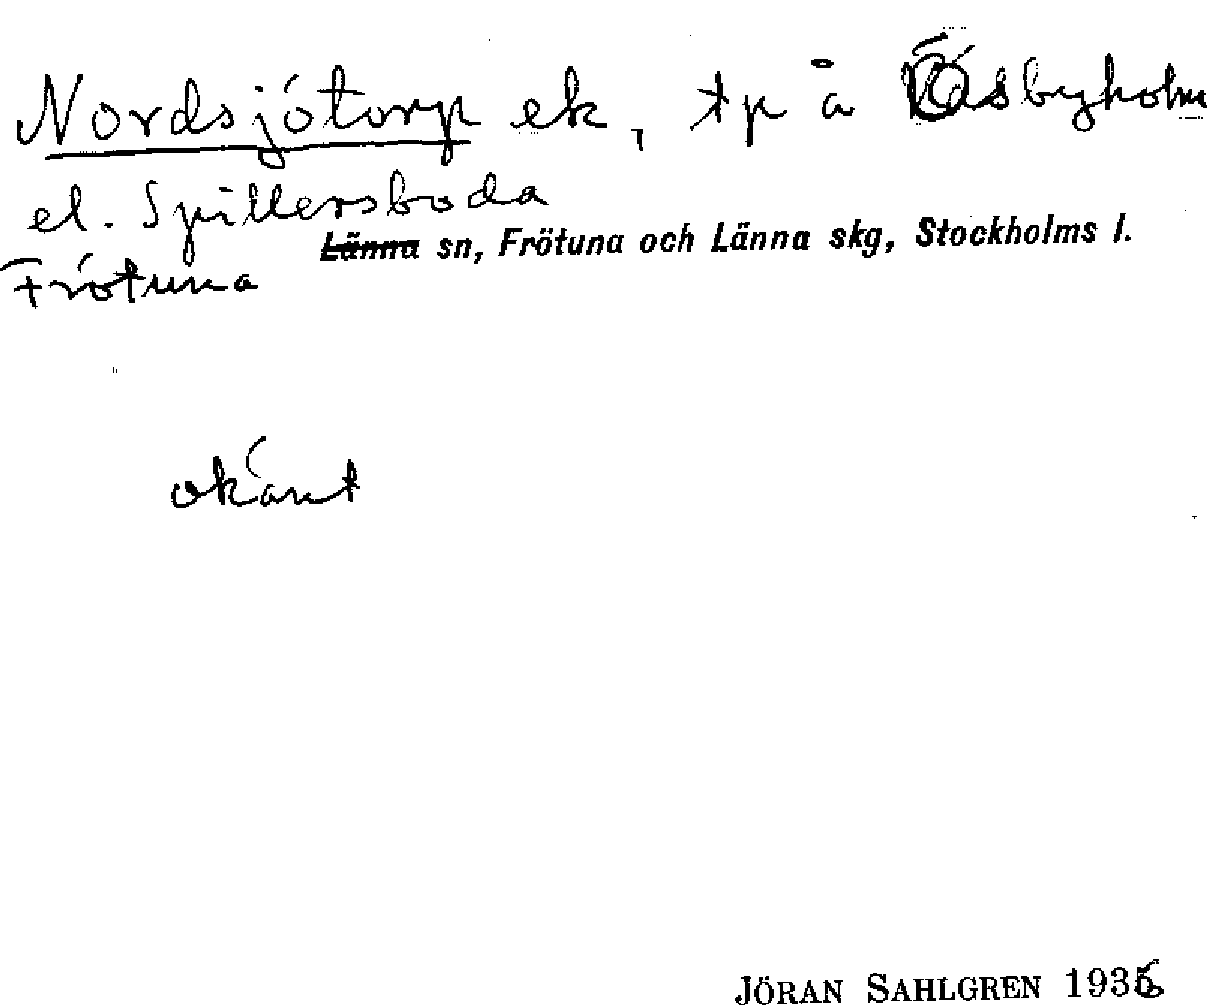 Nordsjötorp ek, tp å Ösbyholm
el. Spillersboda
Länna sn, Frötuna och Länna skg, Stockholms l.
Frötuna
okänt
JÖRAN SAHLGREN 1936